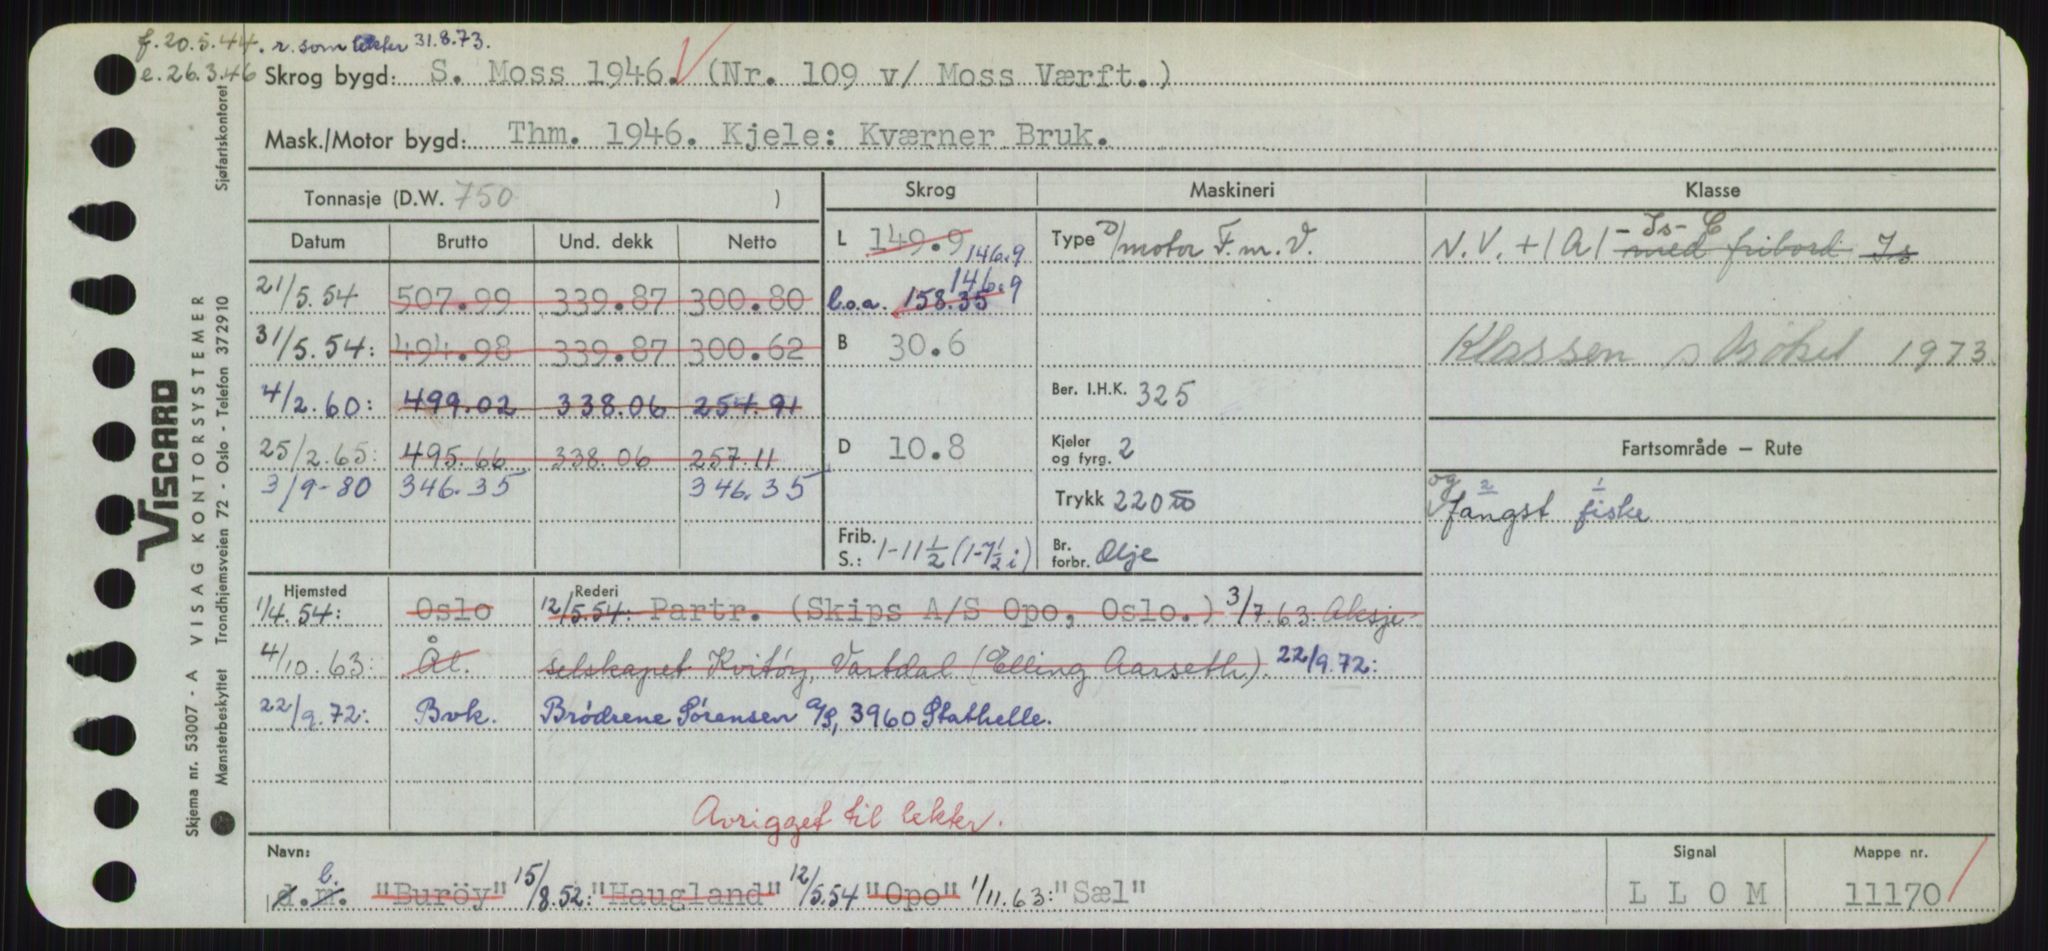 f. 20.5.44. r. som lekter 31.8.73.
e. 26.3.46 Skrog bygd: S. Moss 1946. (Nr. 109 v/ Moss Værft.)
Mask./Motor bygd: Thm. 1946. Kjele: Kværner Bruk.
Tonnasje (D.W. 750 ) Skrog Maskineri Klasse
Datum Brutto Und. dekk Netto L 149.9 146.9 Type D/motor F.m.V. N.V. + 1A1 - Is - C med fribord. Is
21/5.54 507.99 339.87 300.80 l.o.a. 158.35 146.9
31/5.54: 494.98 339.87 300.62 B 30.6 Klassen 1973.
4/2.60: 499.02 338.06 254.91 Ber. I.H.K. 325
25/2.65: 495.66 338.06 257.11 D 10.8 Kjeler og fyrg. 2 Fartsområde — Rute
3/9-80 346.35 346.35 Trykk 220 og fangst 2 fiske 1
Frib. S.: 1-11½ (1-7½ i) Br. forbr. Olje
Hjemsted Rederi
1/4.54: Oslo 12/5.54: Partr. (Skips A/S Opo, Oslo.) 3/7.63: Aksje-
4/10.63: Ål. selskapet Kvitøy, Vartdal (Elling Aarseth). 22/9.72:
22/9.72: Bvk. Brödrene Sörensen A/S, 3960 Stathelle.
Avrigget til lekter.
Navn: Signal Mappe nr.
d. m. l. "Buröy" 15/8.52: "Haugland" 12/5.54 "Opo" 1/11.63: "Sæl" L L O M 11170
VISCARD
VISAG KONTORSYSTEMER
Skjema nr. 53007 - A
Mønsterbeskyttet Trondhjemsveien 72 - Oslo - Telefon 372910 Sjøfartskontoret